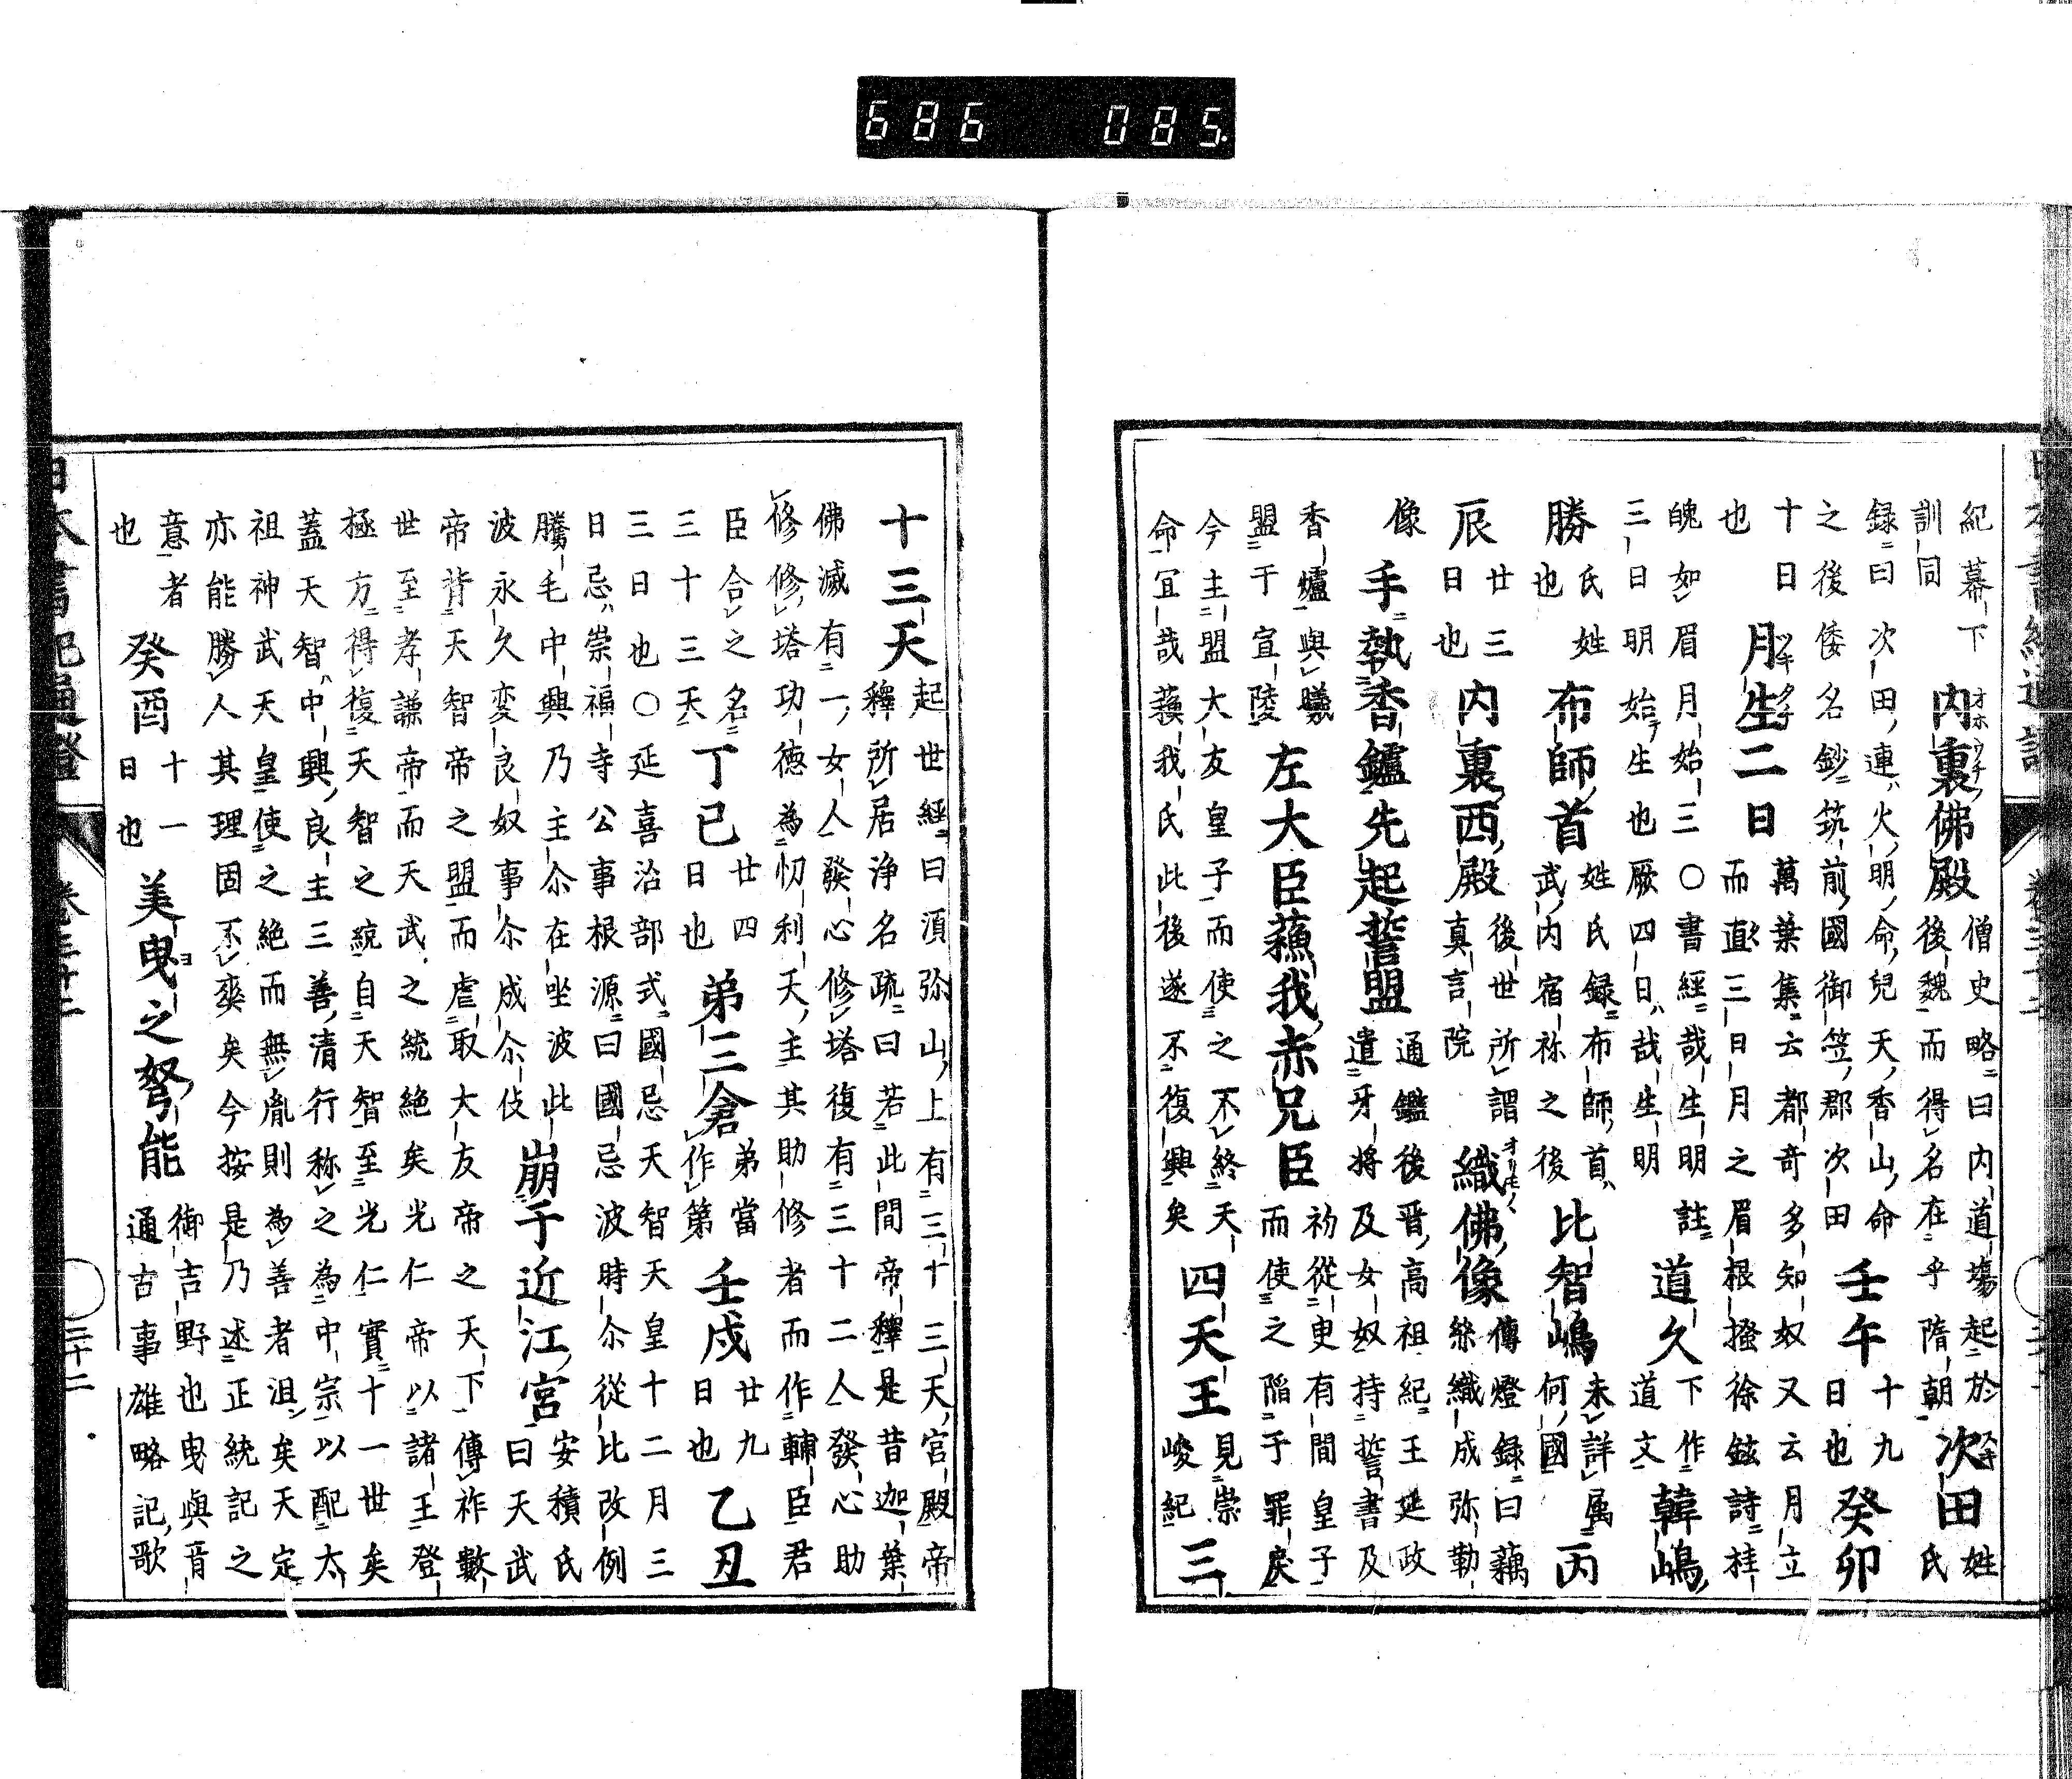 紀幕下
訓同
内裏佛殿
僧史略曰内道場起於
後魏而得名在乎隋朝
次田
姓
氏
録曰次田連火明命兒天香山命
之後倭名鈔筑前國御笠郡次田
壬午
十九
日也
癸卯
十日
也
月生二日
萬葉集云都奇多知奴又云月立
而直三日月之眉根搔徐鉉詩桂
魄如眉月始三〇書經哉生明註
三日明始生也厥四日哉生明
道久
下作
道文
韓嶋
勝
氏姓
也
布師首
姓氏録布師首
武内宿祢之後
比智嶋
未詳属
何國
丙
辰
廿三
日也
内裏西殿
後世所謂
真言院
織佛像
傳燈録曰藕
絲織成弥勒
像
手執香鑪先起誓盟
通鑑後晋高祖紀王延政
遣牙將及女奴持誓書及
香爐與曦
盟于宣陵
左大臣蘓我赤兄臣
初從臾有間皇子
而使之陷于罪戻
今主盟大友皇子而使之不終天
命冝哉蘓我氏此後遂不復興矣
四天王
見崇
峻紀
三
十三天
起世經曰須弥山上有三十三天宮殿帝
釋所居浄名疏曰若此間帝釋是昔迦葉
佛滅有一女人發心修塔復有三十二人發心助
修修塔功徳為忉利天主其助修者而作輔臣君
臣合之名
三十三天
丁巳
廿四
日也
弟三倉
弟當
作第
壬戌
廿九
日也
乙丑
三日也〇延喜治部式國忌天智天皇十二月三
日忌崇福寺公事根源曰國忌波時尒從比改例
騰毛中興乃主尒在坐波此
波永久変良奴事尒成尒伎
崩于近江宮
安積氏
曰天武
帝背天智帝之盟而虐取大友帝之天下傳祚數
世至孝謙帝而天武之統絶矣光仁帝以諸王登
極方得復天智之統自天智至光仁實十一世矣
蓋天智中興良主三善清行称之為中宗以配太
祖神武天皇使之絶而無胤則為善者沮矣天定
亦能勝人其理固不爽矣今按是乃述正統記之
意者
也
癸酉
十一
日也
美曳之弩能
御吉野也曳與音
通古事雄略記歌
日本書紀通證 卷三十二 三十二
686 085